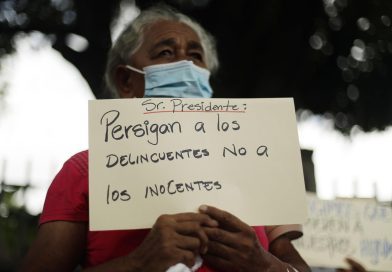 Sr. Presidente:
Persigan a los
DELINCUENTES NO a
los INOCENTES